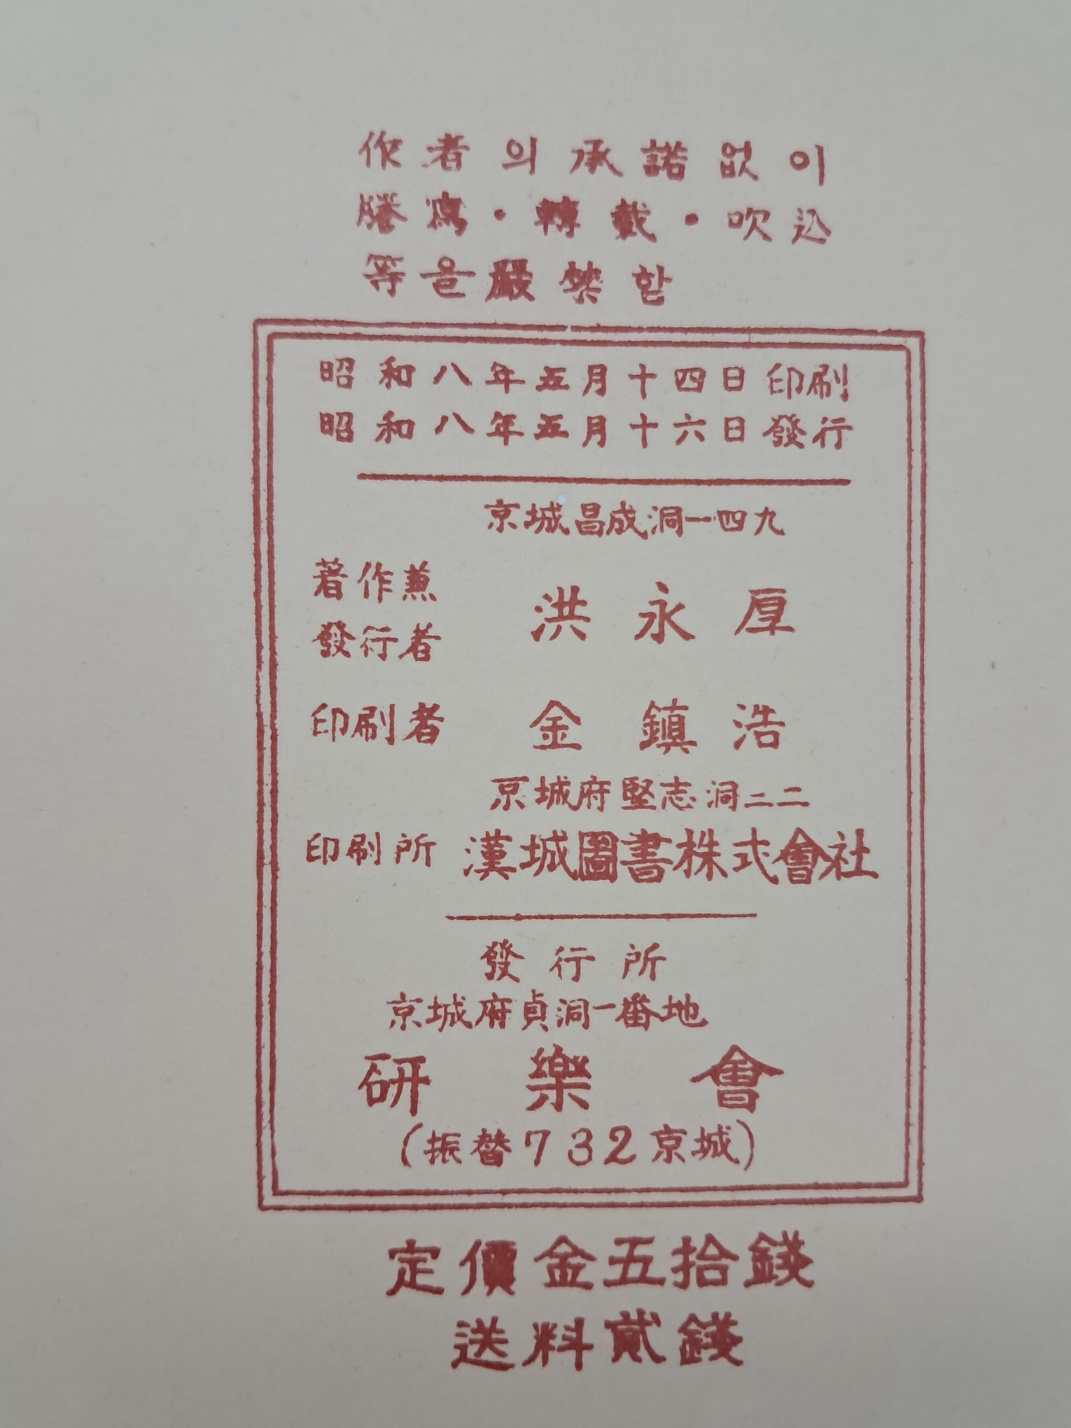 作者의承諾없이
謄寫·轉載·吹込
等을嚴禁함
昭和八年五月十四日印刷
昭和八年五月十六日發行
京城昌成洞一四九
著作兼
發行者
洪永厚
印刷者 金鎭浩
京城府堅志洞三二
印刷所 漢城圖書株式會社
發行所
京城府貞洞一番地
硏樂會
(振替732京城)
定價金五拾錢
送料貳錢